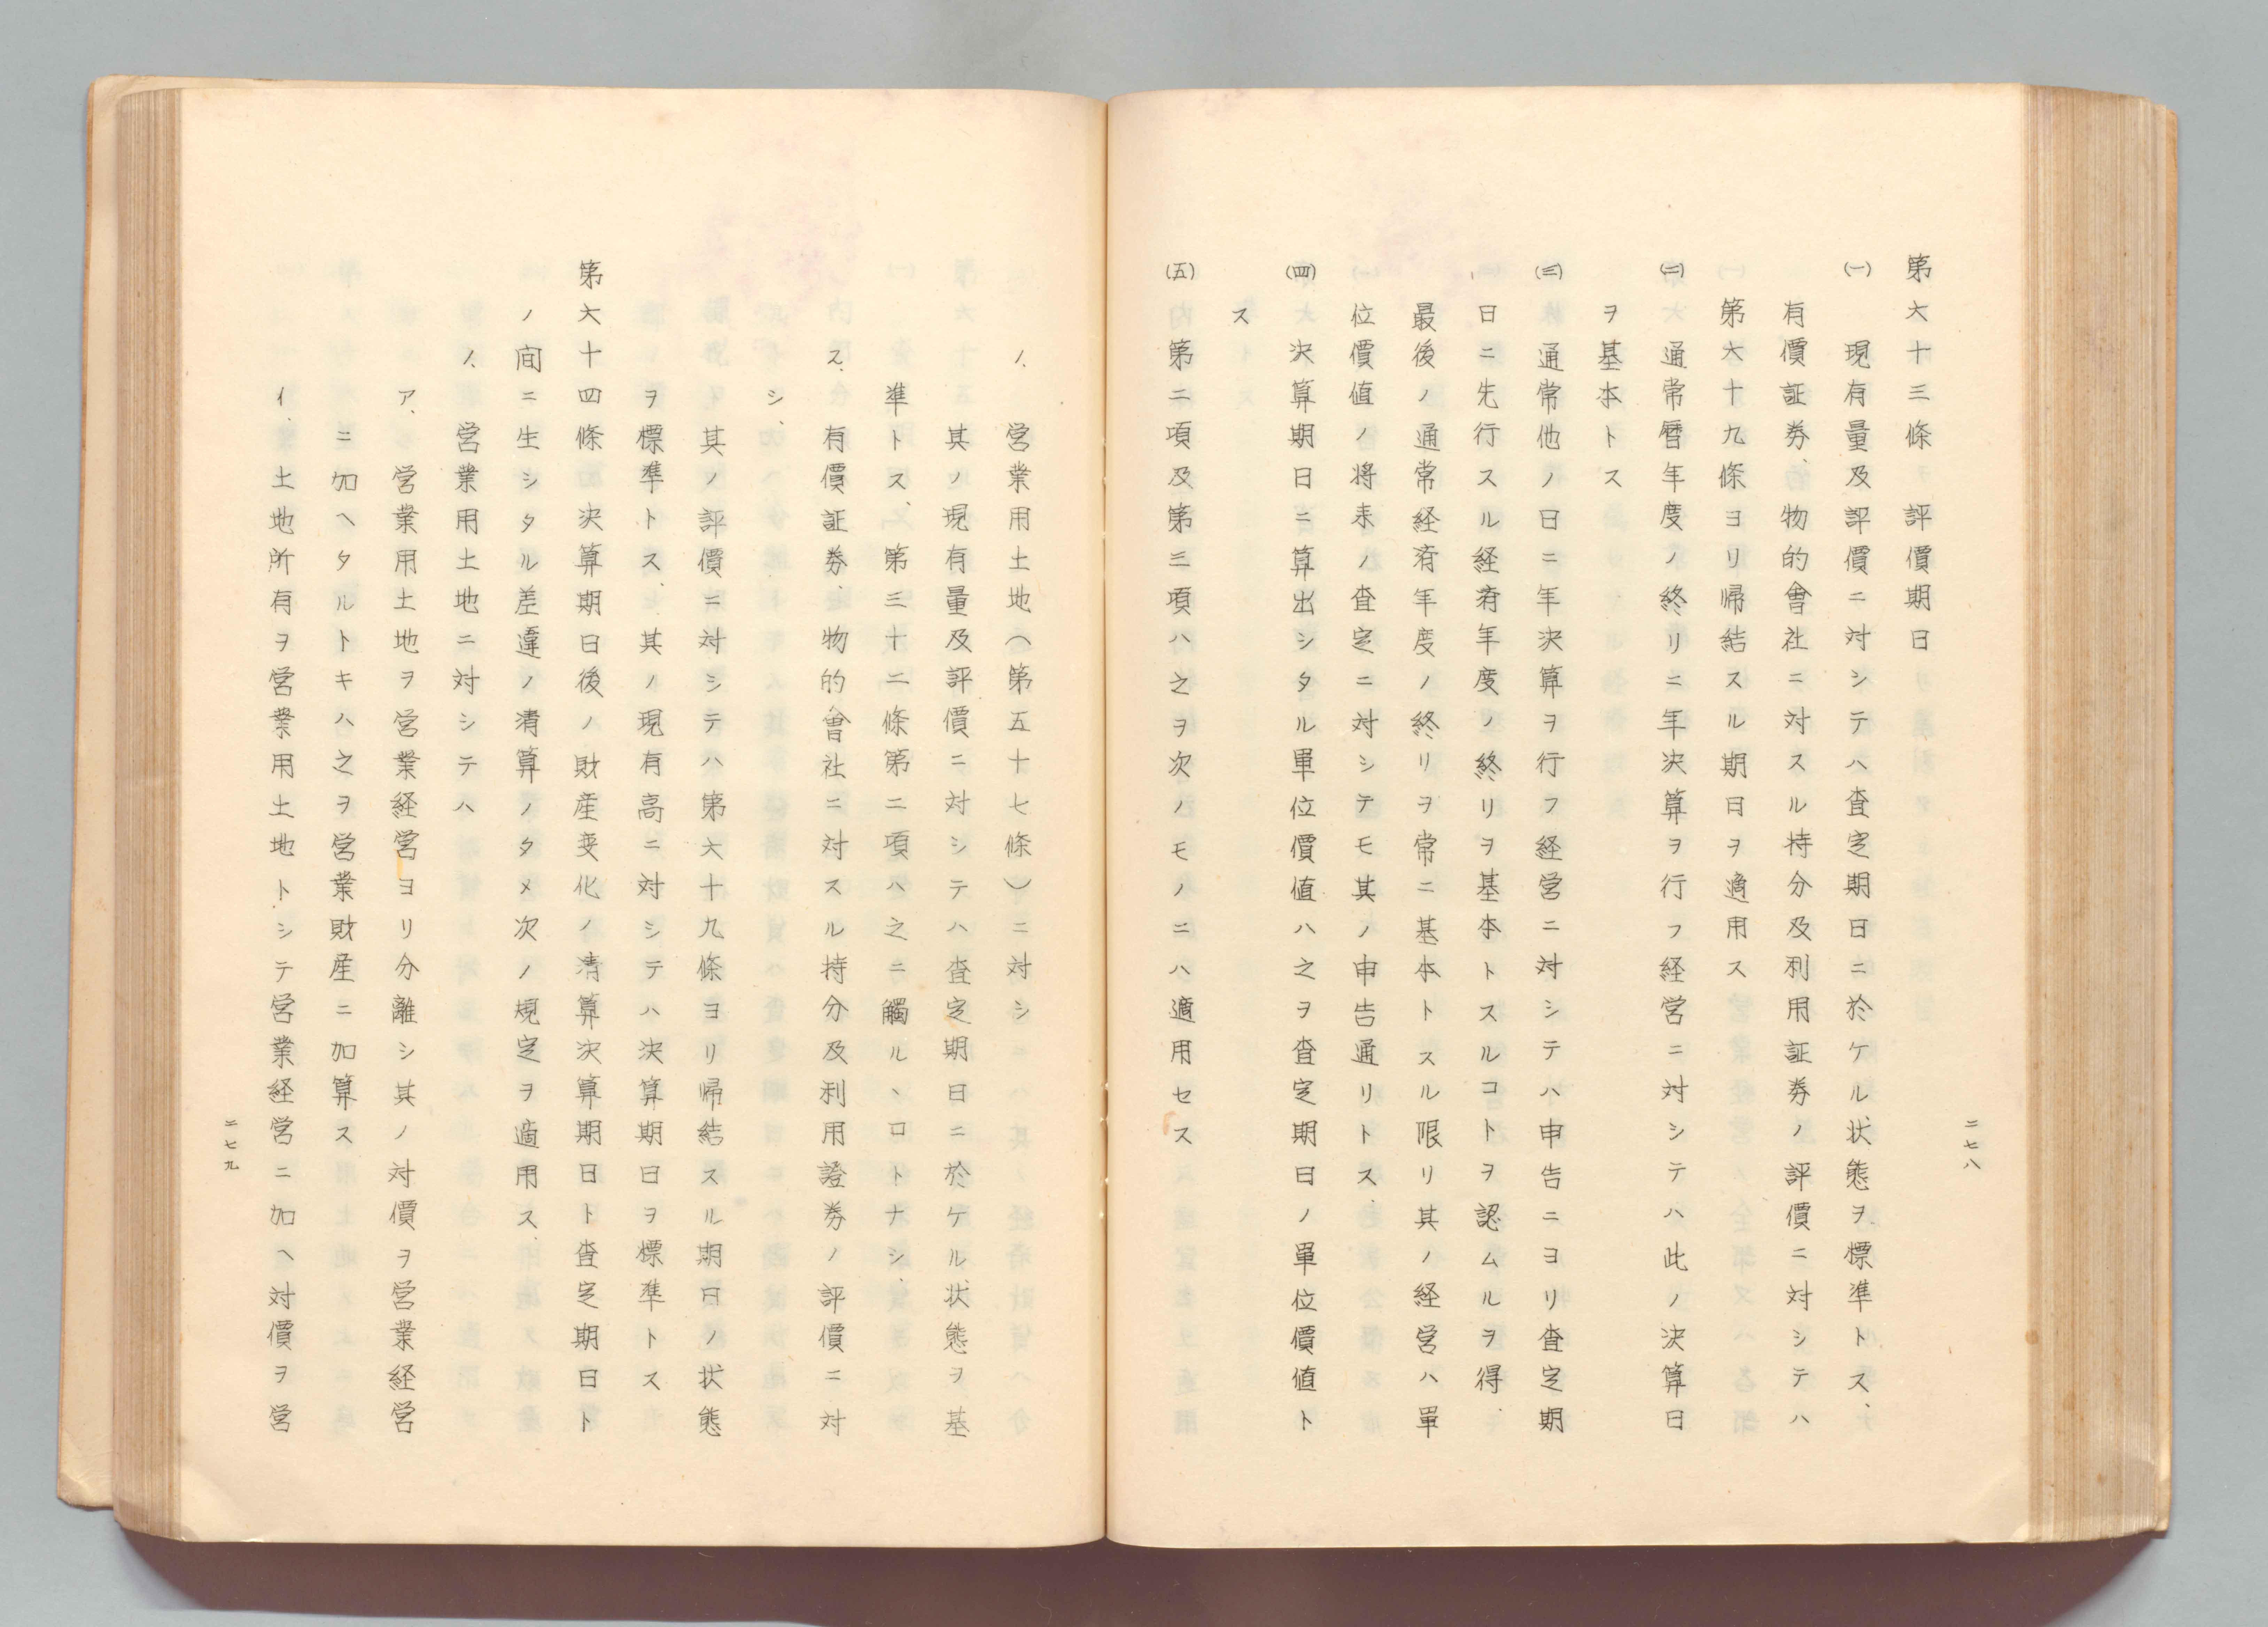 二七八
第六十三條　評價期日
(一)　現有量及評價ニ対シテハ査定期日ニ於ケル状態ヲ標準トス、
有價証券、物的會社ニ対スル持分及利用証券ノ評價ニ対シテハ
第六十九條ヨリ帰結スル期日ヲ適用ス
(二)　通常暦年度ノ終リニ年決算ヲ行フ経営ニ対シテハ此ノ決算日
ヲ基本トス
(三)　通常他ノ日ニ年決算ヲ行フ経営ニ対シテハ申告ニヨリ査定期
日ニ先行スル経済年度ノ終リヲ基本トスルコトヲ認ムルヲ得、
最後ノ通常経済年度ノ終リヲ常ニ基本トスル限リ其ノ経営ハ單
位價値ノ将来ノ査定ニ対シテモ其ノ申告通リトス、
(四)　決算期日ニ算出シタル單位價値ハ之ヲ査定期日ノ單位價値ト
ス
(五)　第二項及第三項ハ之ヲ次ノモノニハ適用セス
ノ、　営業用土地（第五十七條）ニ対シ
其ノ現有量及評價ニ対シテハ査定期日ニ於ケル状態ヲ基
準トス、第三十二條第二項ハ之ニ觸ルヽロトナシ、
ス、　有價証券、物的會社ニ対スル持分及利用證券ノ評價ニ対
シ、
其ノ評價ニ対シテハ第六十九條ヨリ帰結スル期日ノ状態
ヲ標準トス、其ノ現有高ニ対シテハ決算期日ヲ標準トス
第六十四條　決算期日後ノ財産変化ノ清算決算期日ト査定期日ト
ノ間ニ生シタル差違ノ清算ノタメ次ノ規定ヲ適用ス、
ノ、営業用土地ニ対シテハ
ア、営業用土地ヲ営業経営ヨリ分離シ其ノ対價ヲ営業経営
ニ加ヘタルトキハ之ヲ営業財産ニ加算ス
イ、土地所有ヲ営業用土地トシテ営業経営ニ加ヘ対價ヲ営
二七九